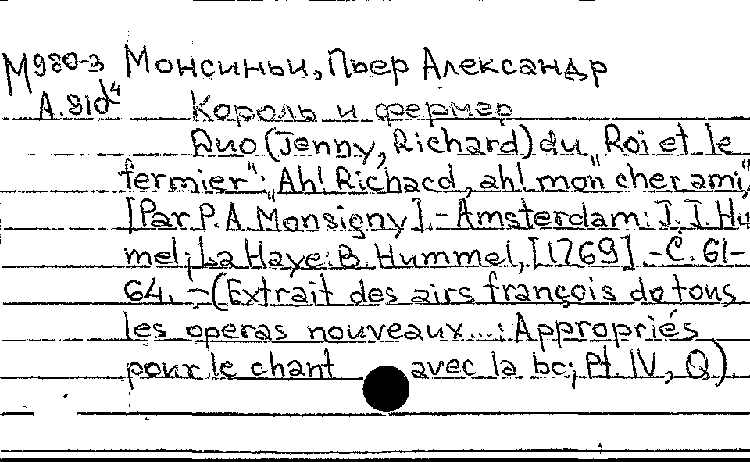 М980-3 Монсиньи, Пьер Александр
A.810⁴ Король и фермер
Duo (Jenny, Richard) du „Roi et le
fermier": „Ah! Richard, ah! mon cher ami"
[Par P. A. Monsigny]. - Amsterdam: J. J. Hum
mel; La Haye: B. Hummel, [1769]. - С. 61-
64. - (Extrait des airs françois de tous
les operas nouveaux...: Appropriés
pour le chant avec la bc; Pt. IV, Q).